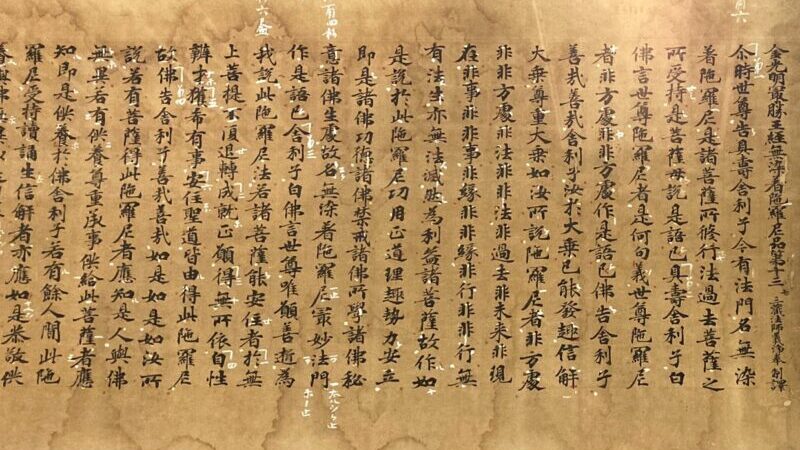 金光明最勝王經無染著陁羅尼品第十三 三藏法師義淨奉 制譯
尒時世尊告具壽舍利子今有法門名無染
著陁羅尼是諸菩薩所修行法過去菩薩之
所受持是菩薩母說是語已具壽舍利子白
佛言世尊陁羅尼者是何句義世尊陁羅尼
者非方處非非方處作是語已佛告舍利子
善哉善哉舍利子汝於大乘已能發趣信解
大乘尊重大乘如汝所說陁羅尼者非方處
非非方處非法非非法非過去非未來非現
在非事非非事非緣非非緣非行非非行無
有法生亦無法滅然為利益諸菩薩故作如
是說於此陁羅尼功用正道理趣勢力安立
即是諸佛功德諸佛禁戒諸佛所學諸佛秘
意諸佛生處故名無染著陁羅尼最妙法門
作是語已舍利子白佛言世尊唯願善逝為
我說此陁羅尼法若諸菩薩能安住者於無
上菩提不頂退轉成就正願得無所依自性
辯才獲希有事安住聖道皆由得此陁羅尼
故佛告舍利子善哉善哉如是如是如汝所
說若有菩薩得此陁羅尼者應知是人與佛
無異若有供養尊重承事供給此菩薩者應
知即是供養於佛舍利子若有餘人聞此陁
羅尼受持讀誦生信解者亦應如是恭敬供